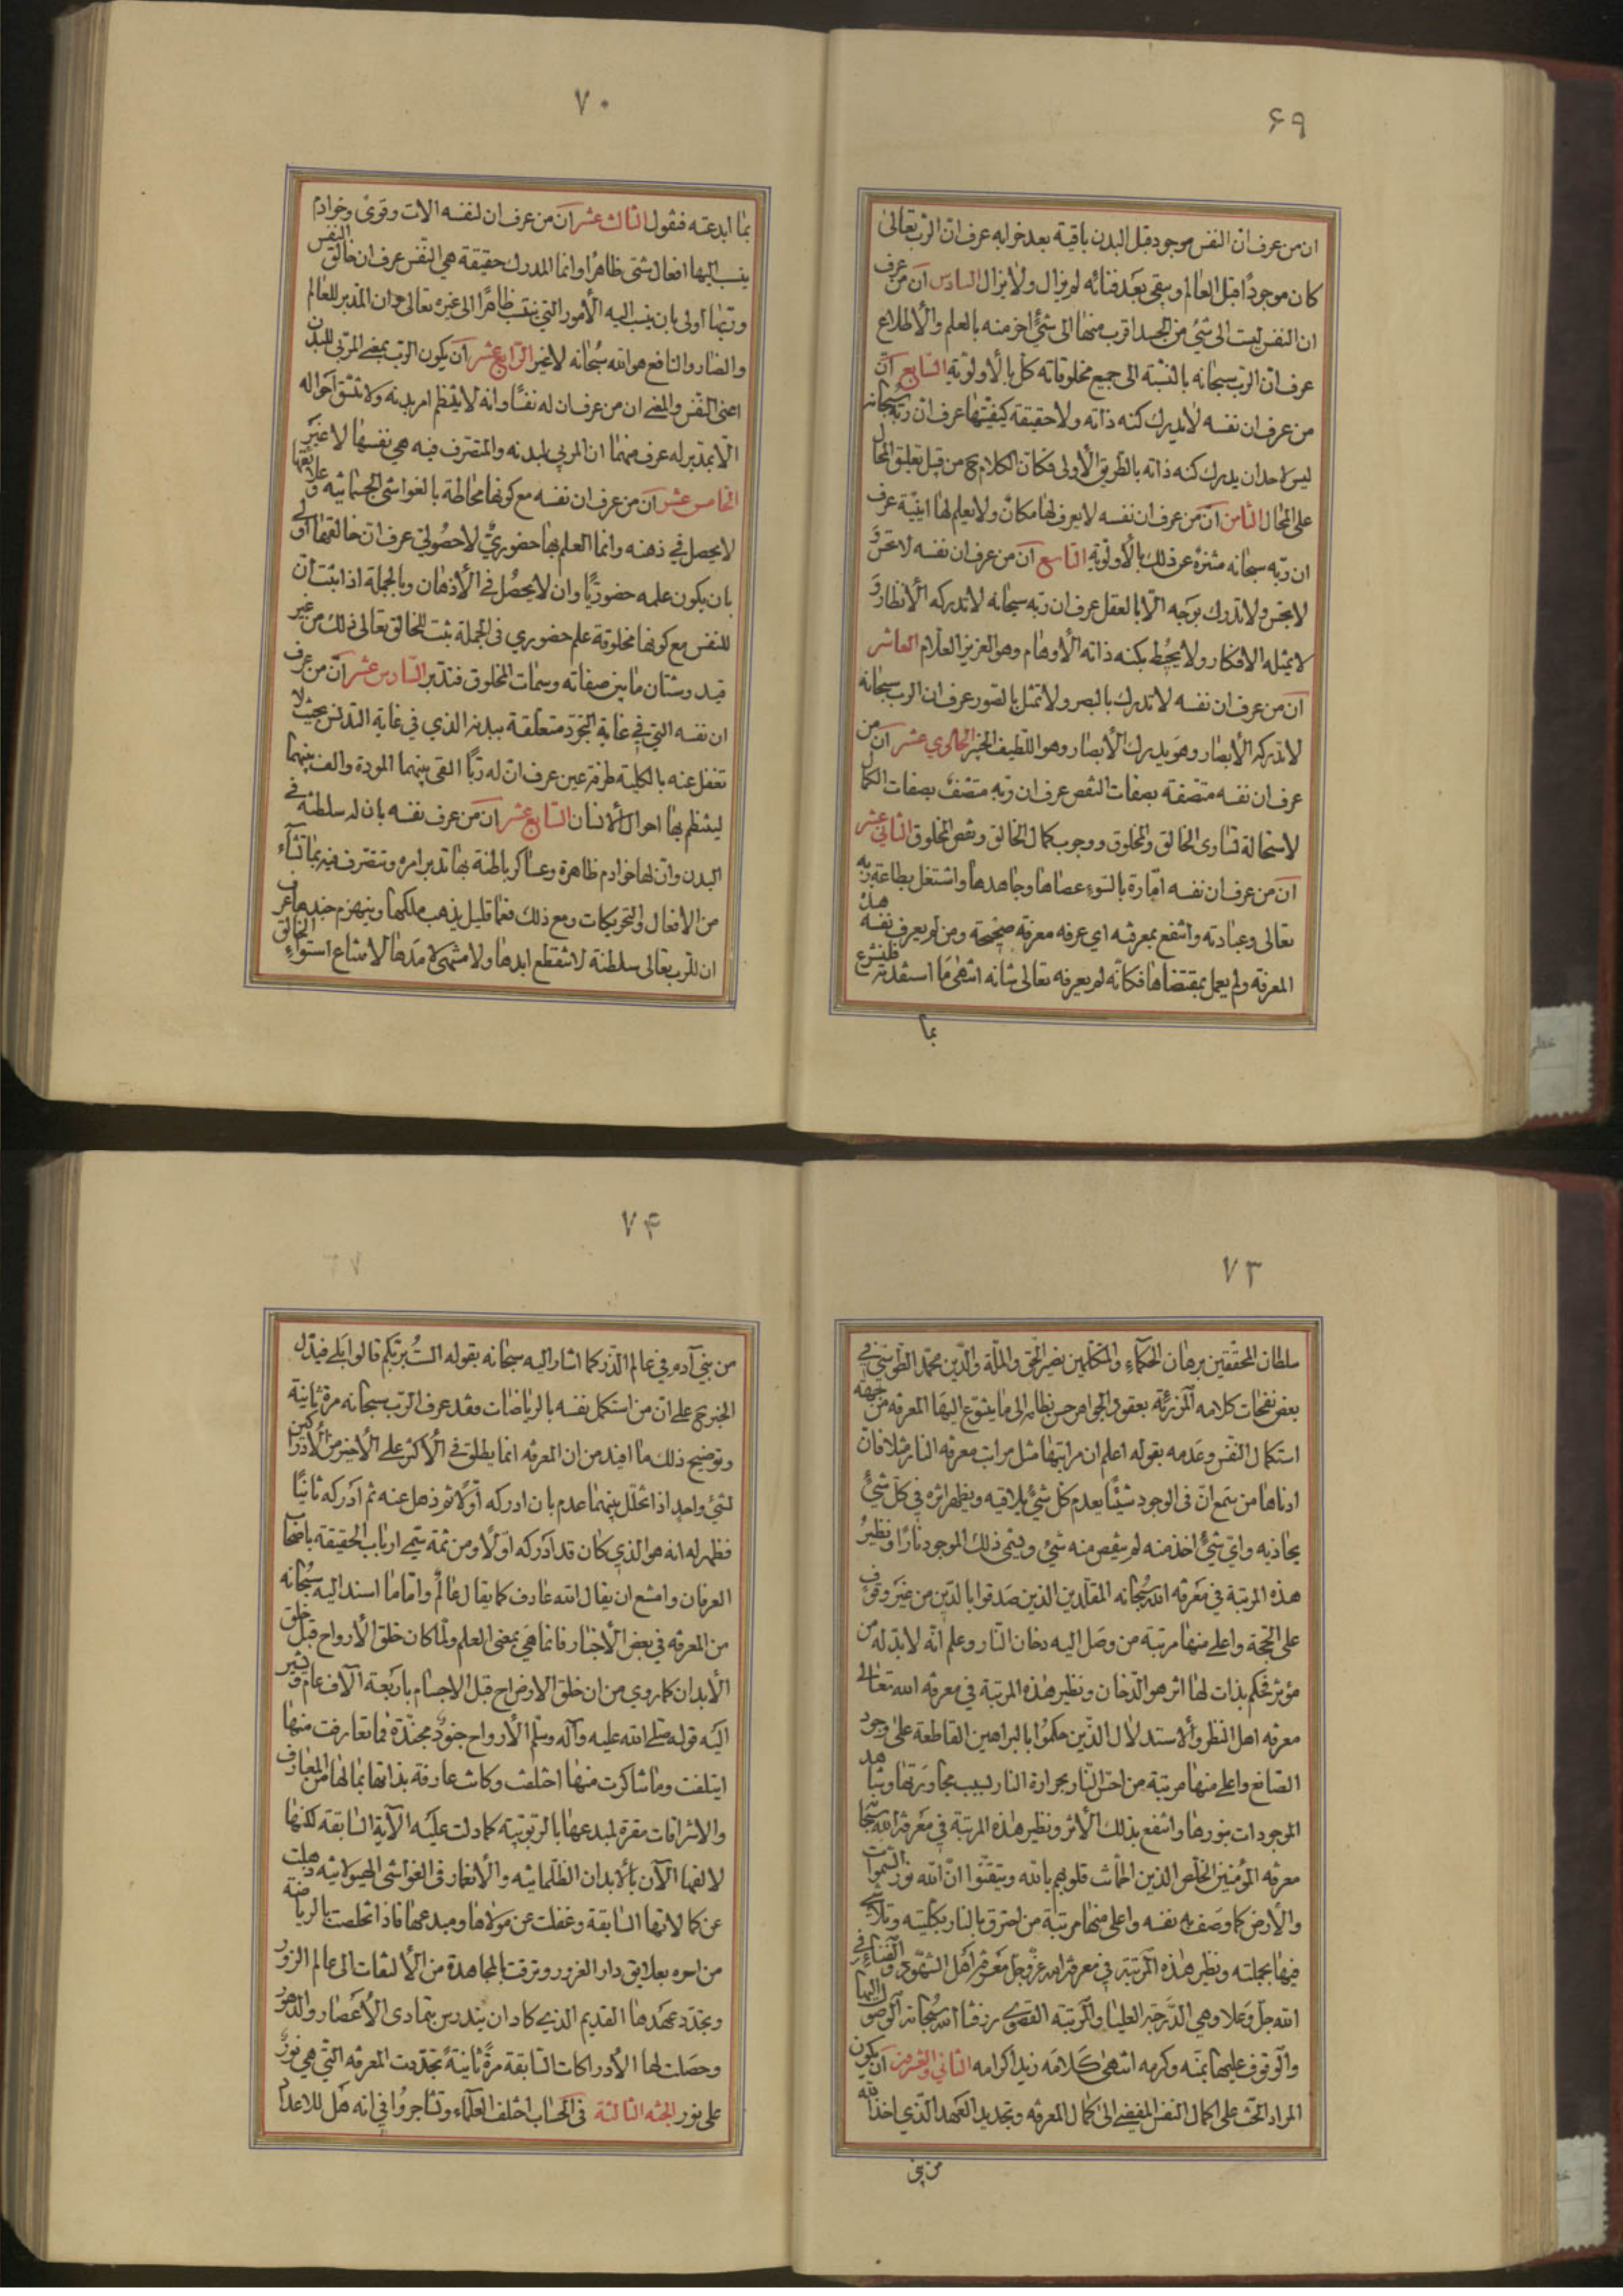 ۶۹
ان من عرف ان النفس موجود قبل البدن باقية بعد خرابه عرف ان الرب تعالى
كان موجوداً قبل العالم ويبقى بعد فنائه لم يزل ولا يزال السادس ان من عرف
ان النفس ليست الى شئ من الجسد اقرب منها الى شئ اخر منه بالعلم والاطلاع
عرف ان الرب سبحانه بالنسبة الى جميع مخلوقاته كل بالاولوية السابع ان
من عرف ان نفسه لا يدرك كنه ذاته ولا حقيقة كيفيتها عرف ان ربه سبحانه
ليس لاحد ان يدرك كنه ذاته بالطريق الاولى فكان الكلام ح من قبل تعليق المحال
على المحال الثامن ان من عرف ان نفسه لا يعرف لها مكان ولا يعلم لها اينية عرف
ان ربه سبحانه منزه عن ذلك بالاولوية التاسع ان من عرف ان نفسه لا تحس و
لا تجس ولا تدرك بوجه الا بالعقل عرف ان ربه سبحانه لا تدركه الانظار و
لا يمثله الافكار ولا يحيط بكنه ذاته الاوهام وهو العزيز العلام العاشر
ان من عرف ان نفسه لا تدرك بالبصر ولا تمثل بالصور عرف ان الرب سبحانه
لا تدركه الأبصار وهو يدرك الأبصار وهو اللطيف الخبير الحادي عشر ان من
عرف ان نفسه متصفة بصفات النقص عرف ان ربه متصف بصفات الكمال
لاستحالة تساوى الخالق والمخلوق ووجوب كمال الخالق ونقص المخلوق الثاني عشر
ان من عرف ان نفسه امارة بالسوء عصاها وجاهدها واشتغل بطاعة ربه
تعالى وعبادته وانتفع بمعرفته اي عرفه معرفة صحيحة ومن لم يعرف نفسه هذه
المعرفة ولم يعمل بمقتضاها فكانه لم يعرفه تعالى شانه انتهى ما استفدته فلنشرع
بما
۷۰
بما ابدعته فنقول الثالث عشر ان من عرف ان لنفسه الات وقوى وخوادم
ينسب اليها افعال شتى ظاهرا وانما المدرك حقيقة هي النفس عرف ان خالق النفس
وربها اولى بان ينسب اليه الأمور التي ينتسب ظاهرا الى غيره تعالى وان المدبر للعالم
والضار والنافع هو الله سبحانه لا غير الرابع عشر ان يكون الرب بمعنى المربي للبدن
اعنى النفس والمعنى ان من عرف ان له نفسا وانه لا ينتظم امر بدنه ولا تتسق احواله
الا بتدبير له عرف منهما ان المربي لبدنه والمتصرف فيه هي نفسها لا غير
الخامس عشر ان من عرف ان نفسه مع كونها مخالطة بالغواشي الجسمانية و علايقها
لا يحصل في ذهنه وانما العلم بها حضوري لا حصولي عرف ان خالقها اولى
بان يكون علمه حضوريا وان لا يحصل في الأذهان وبالجملة اذا ثبت ان
للنفس مع كونها مخلوقة علم حضوري في الجملة ثبت للخالق تعالى ذلك من غير
قيد وشتان ما بين صفاته وسمات المخلوق فتدبر السادس عشر ان من عرف
ان نفسه التي في غاية التجرد متعلقة ببدنه الذي في غاية التدنس بحيث لا
تغفل عنه بالكلية طرفة عين عرف ان له ربا القى بينهما المودة والف بينهما
لينتظم بها احوال الانسان السابع عشر ان من عرف نفسه بان له سلطنة في
البدن وان لها خوادم ظاهرة وعساكر باطنة بها تدبر امره وتتصرف فيه بما تشاء
من الافعال والتحريكات ومع ذلك فعما قليل يذهب ملكها وينهزم جندها عرف
ان للرب تعالى سلطنة لا تنقطع ابدها ولا منتهى لامدها لامتناع استواء الخالق
۷۳
سلطان المحققين برهان الحكماء والمتكلمين نصير الحق والملة والدين محمد الطوسي في
بعض نفحات كلامه المزرية بعقود الجواهر حسن نظامه الى ما يتنوع اليها المعرفه من جهة
استكمال النفس وعدمه بقوله اعلم ان مراتبها مثل مراتب معرفه النار مثلا فان
ادناها من سمع ان في الوجود شيئا يعدم كل شئ يلاقيه ويظهر اثره في كل شئ
يحاذيه واي شئ اخذ منه لم ينقص منه شئ ويسمى ذلك الموجود نارا ونظير
هذه المرتبة في معرفه الله سبحانه المقلدين الذين صدقوا بالدين من غير وقوف
على الحجة واعلى منها مرتبة من وصل اليه دخان النار وعلم انه لا بد له من
مؤثر فحكم بذات لها اثر هو الدخان ونظير هذه المرتبة في معرفه الله تعالى
معرفه اهل النظر والاستدلال الذين حكموا بالبراهين القاطعة على وجود
الصانع واعلى منها مرتبة من احس النار بحرارة النار لسبب مجاورتها وشاهد
الموجودات بنورها وانتفع بذلك الاثر ونظير هذه المرتبة في معرفة الله سبحانه
معرفه المؤمنين الخلص الذين اطمأنت قلوبهم بالله وتيقنوا ان الله نور السموات
والأرض كما وصف به نفسه واعلى منها مرتبة من احترق بالنار بكليته وتلاشى
فيها بجملته ونظير هذه المرتبة في معرفة الله عز وجل معرفة اهل الشهود والفناء في
الله جل وعلا وهي الدرجة العليا والمرتبة القصوى رزقنا الله سبحانه الوصول اليها
والوقوف عليها بمنه وكرمه انتهى كلامه زيد اكرامه الثاني والعشرون ان يكون
المراد الحث على اكمال النفس المفضي الى كمال المعرفه وتجديد العهد الذي اخذ الله
من بني
۷۴
من بني آدم في عالم الذر كما اشار اليه سبحانه بقوله الست بربكم قالوا بلى فيدل
الخبر ح على ان من استكمل نفسه بالرياضات فقد عرف الرب سبحانه مرة ثانية
وتوضيح ذلك ما افيد من ان المعرفه انما يطلق في الأكثر على الأخير من الادراكين
لشئ واحد اذا تخلل بينهما عدم بان ادركه اولا ثم ذهل عنه ثم ادركه ثانيا
فظهر له انه هو الذي كان قد ادركه اولا ومن ثمة سمى ارباب الحقيقة باصحاب
العرفان وامتنع ان يقال الله عارف كما يقال عالم واما ما اسند اليه سبحانه
من المعرفه في بعض الأخبار فانما هي بمعنى العلم ولما كان خلق الأرواح قبل خلق
الأبدان كما روي من ان خلق الارواح قبل الاجسام باربعة آلاف عام ويشير
اليه قوله صلى الله عليه وآله وسلم الأرواح جنود مجندة فما تعارفت منها
ايتلفت وما تناكرت منها اختلفت وكانت عارفة بذاتها بما لها من المعارف
والاشراقات مقرة لمبدعها بالربوبية كما دلت عليه الآية السابقه لكنها
لالفها الآن بالابدان الظلمانيه والانغمار في الغواشي الهيولانيه ذهلت
عن كمالاتها السابقة وغفلت عن مولاها ومبدعها فاذا تخلصت بالرياضة
من اسره بعلايق دار الغرور وترقت بالمجاهدة من الالتفات الى عالم الزور
وتجدد عهدها القديم الذي كاد ان يندرس بتمادى الأعصار والدهور
وحصلت لها الادراكات السابقة مرة ثانية تجددت المعرفه التي هي نور
على نور البحثه الثالثة في الحساب اختلف العلماء وتشاجروا في انه هل للاعداد